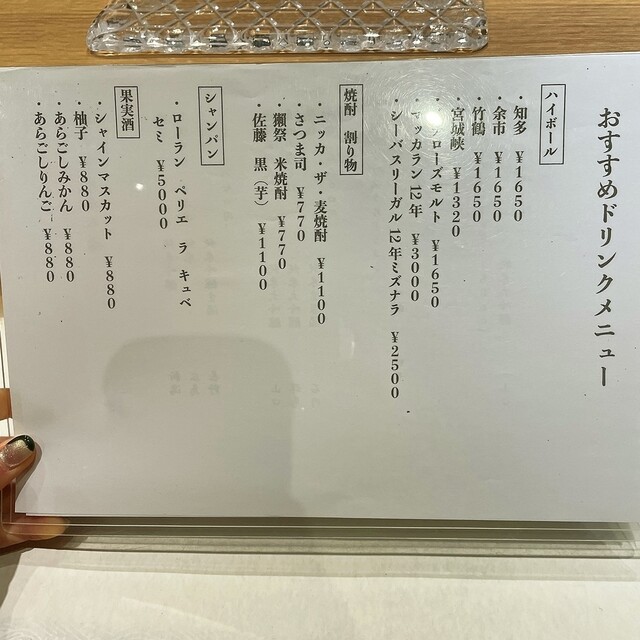 おすすめドリンクメニュー
ハイボール
・知多 ¥1650
・余市 ¥1650
・竹鶴 ¥1650
・宮城峡 ¥1320
ローズモルト ¥1650
マッカラン 12年 ¥3000
・シーバスリーガル 12年ミズナラ ¥2500
焼酎 割り物
・ニッカ・ザ・麦焼酎 ¥1100
・さつま司 ¥770
・獺祭 米焼酎 ¥770
・佐藤 黒（芋） ¥1100
シャンパン
・ローラン ペリエ ラ キュベ
セミ ¥5000
果実酒
・シャインマスカット ¥880
・柚子 ¥880
・あらごしみかん ¥880
・あらごしりんご ¥880